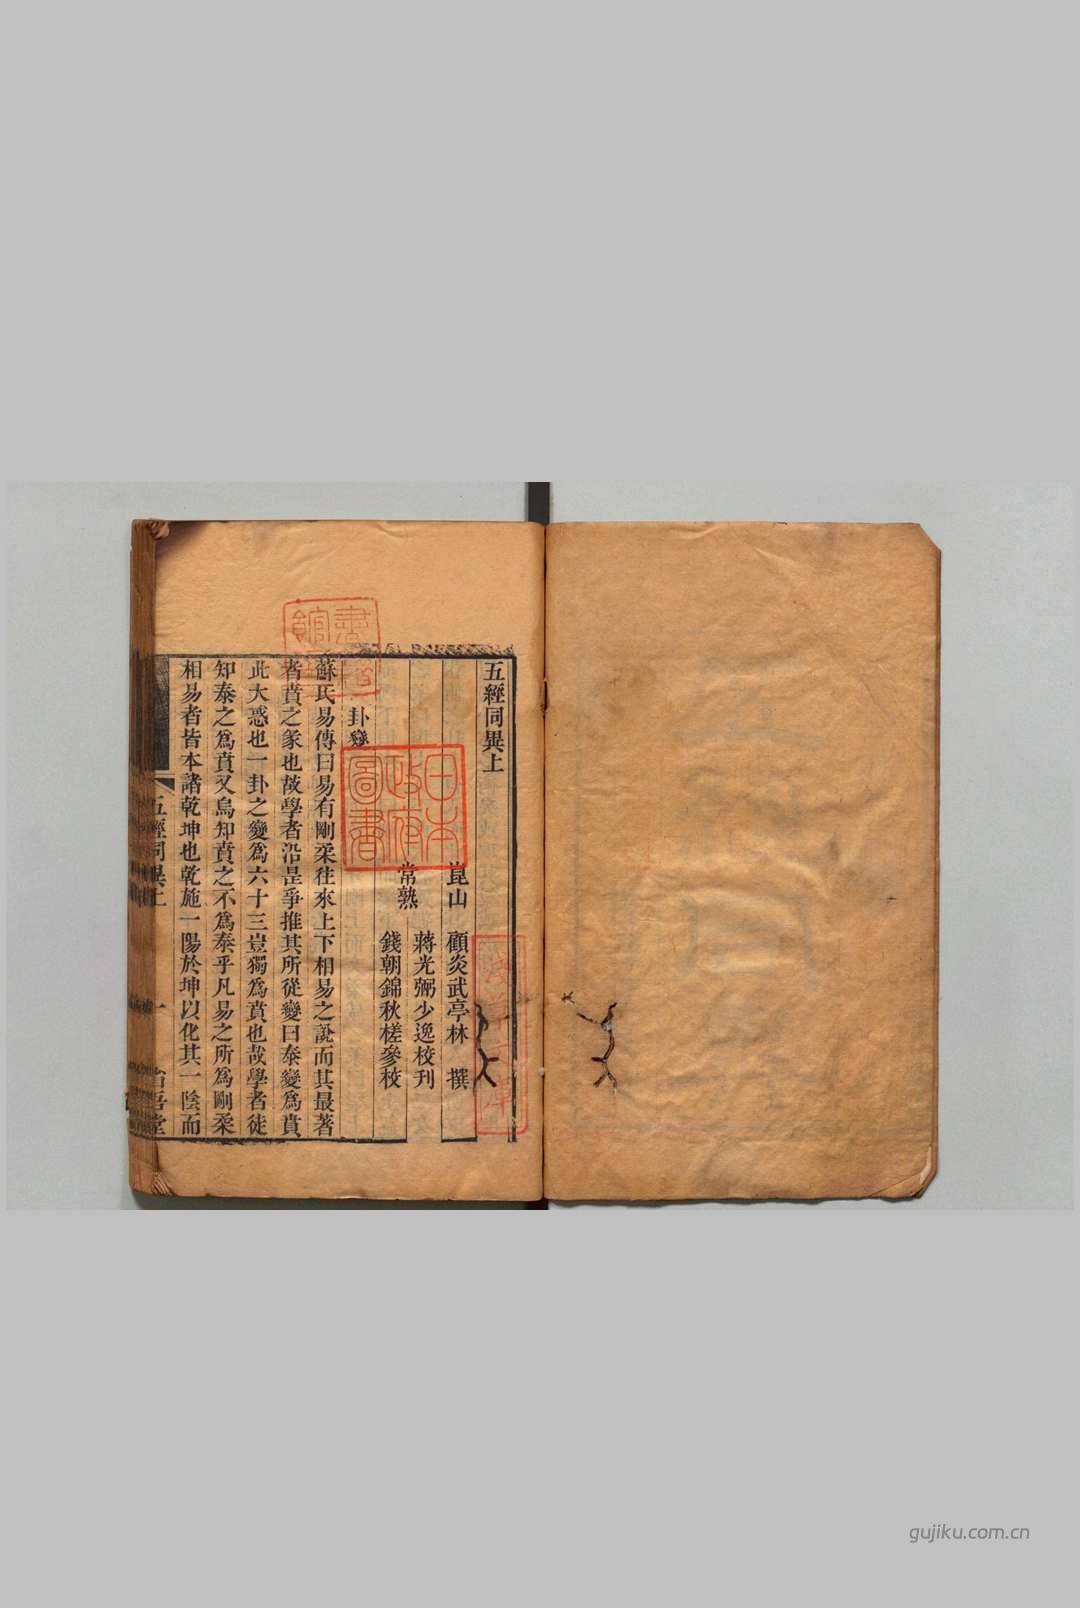 五經同異上
崑山 顧炎武亭林 撰
常熟 蔣光弼少逸校刊
錢朝錦秋槎參校
卦變
蘇氏易傳曰易有剛柔往來上下相易之說而其最著
者賁之彖也故學者沿是爭推其所從變曰泰變為賁
此大惑也一卦之變為六十三豈獨為賁也哉學者徒
知泰之為賁又烏知賁之不為泰乎凡易之所為剛柔
相易者皆本諸乾坤也乾施一陽於坤以化其一陰而
五經同異上 一 省吾堂
日本
政府
圖書
gujiku.com.cn